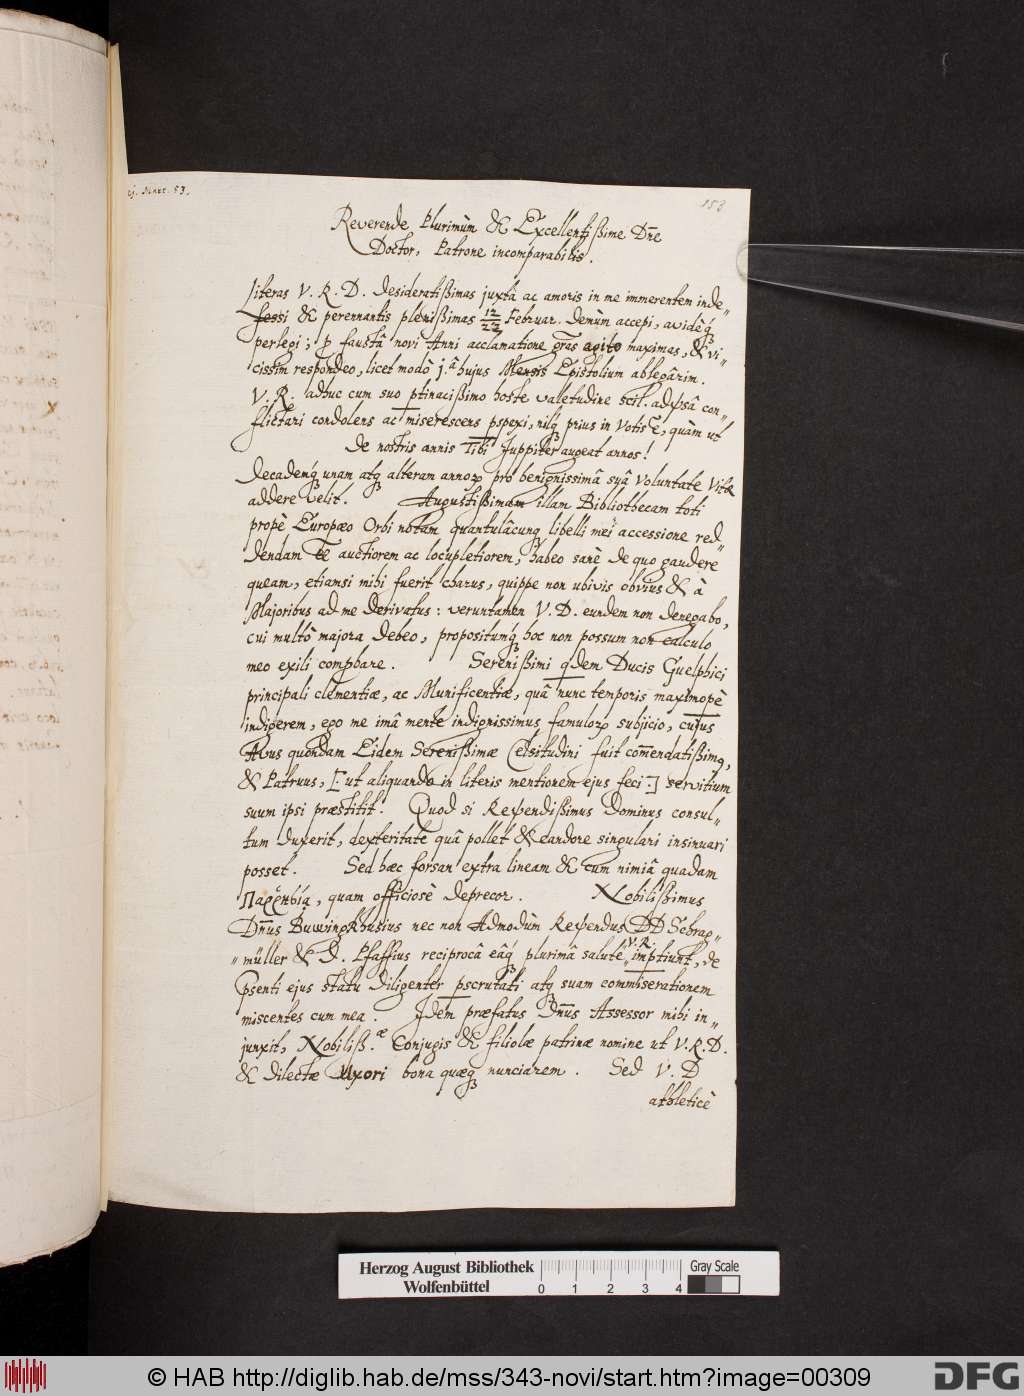 Mart. 53.
153
Reverende Plurimùm & Excellentißime Dn̄e
Doctor, Patrone incomparabilis.
Literas V. R. D. desideratißimas juxtà ac amoris in me immerentem inde„
fessi & perennantis plenißimas 12/22 Februar. demùm accepi, avidèq́
perlegi; p faustâ novi Anni acclamatione gr̄as agito maximas, & vi„
cissim respondeo, licet modò j.â hujus Mensis Epistolium ablegârim.
V. R. adhuc cum suo ptinacißimo hoste valetudine scil. adversâ con„
flictari condolens ac miserescens pspexi, nilq́ prius in votis ē, quàm ut
De nostris annis Tibi Juppiter augeat annos!
Decademq́ unam atq́ alteram annoꝝ pro benignissimâ suâ voluntate Vitæ
addere velit. Augustißimam illam Bibliothecam toti
propè Europæo Orbi notam quantulâcunq libelli mei accessione red„
dendam Te auctiorem ac locupletiorem, habeo sanè de quo gaudere
queam, etiamsi mihi fuerit charus, quippe non ubivis obvius & à
Majoribus ad me derivatus: veruntamen V. D. eundem non denegabo,
cui multò majora debeo, propositumq́ hoc non possum non calculo
meo exili compbare. Serenißimi qdem Ducis Guelphici
principali clementiæ, ac Munificentiæ, quâ nunc temporis maximopè
indigerem, ego me imâ mente indignissimus famuloꝝ subjicio, cujus
Avus quondam Eidem Serenißimæ Celsitudini fuit com̄endatißimq,
& Patruus, [: ut aliquando in literis mentionem ejus feci :] servitium
suum ipsi præstitit. Quod si Reverendißimus Dominus consul„
tum duxerit, dexteritate quâ pollet & candore singulari insinuari
posset. Sed hæc forsan extra lineam & cum nimiâ quadam
Παῤῥησία, quam officiosè deprecor. Nobilißimus
Dn̄us Buwinckhusius nec non Admodùm Reverendus DD Schrap„
„müller & D. Pfaffius reciprocâ eâq́ plurimâ salutē V. R. imptiunt, de
psenti ejus statu diligenter pscrutati atq́ suam commiserationem
miscentes cum mea. Idem præfatus Dn̄us Assessor mihi in„
junxit, Nobiliß.æ Conjugis & filiolæ patrinæ nomine ut V. R. D.
& dilectæ Uxori bona quæq́ nunciarem. Sed V. D
athleticè
Herzog August Bibliothek
Wolfenbüttel
0 1 2 3 4
Gray Scale
© HAB http://diglib.hab.de/mss/343-novi/start.htm?image=00309
DFG